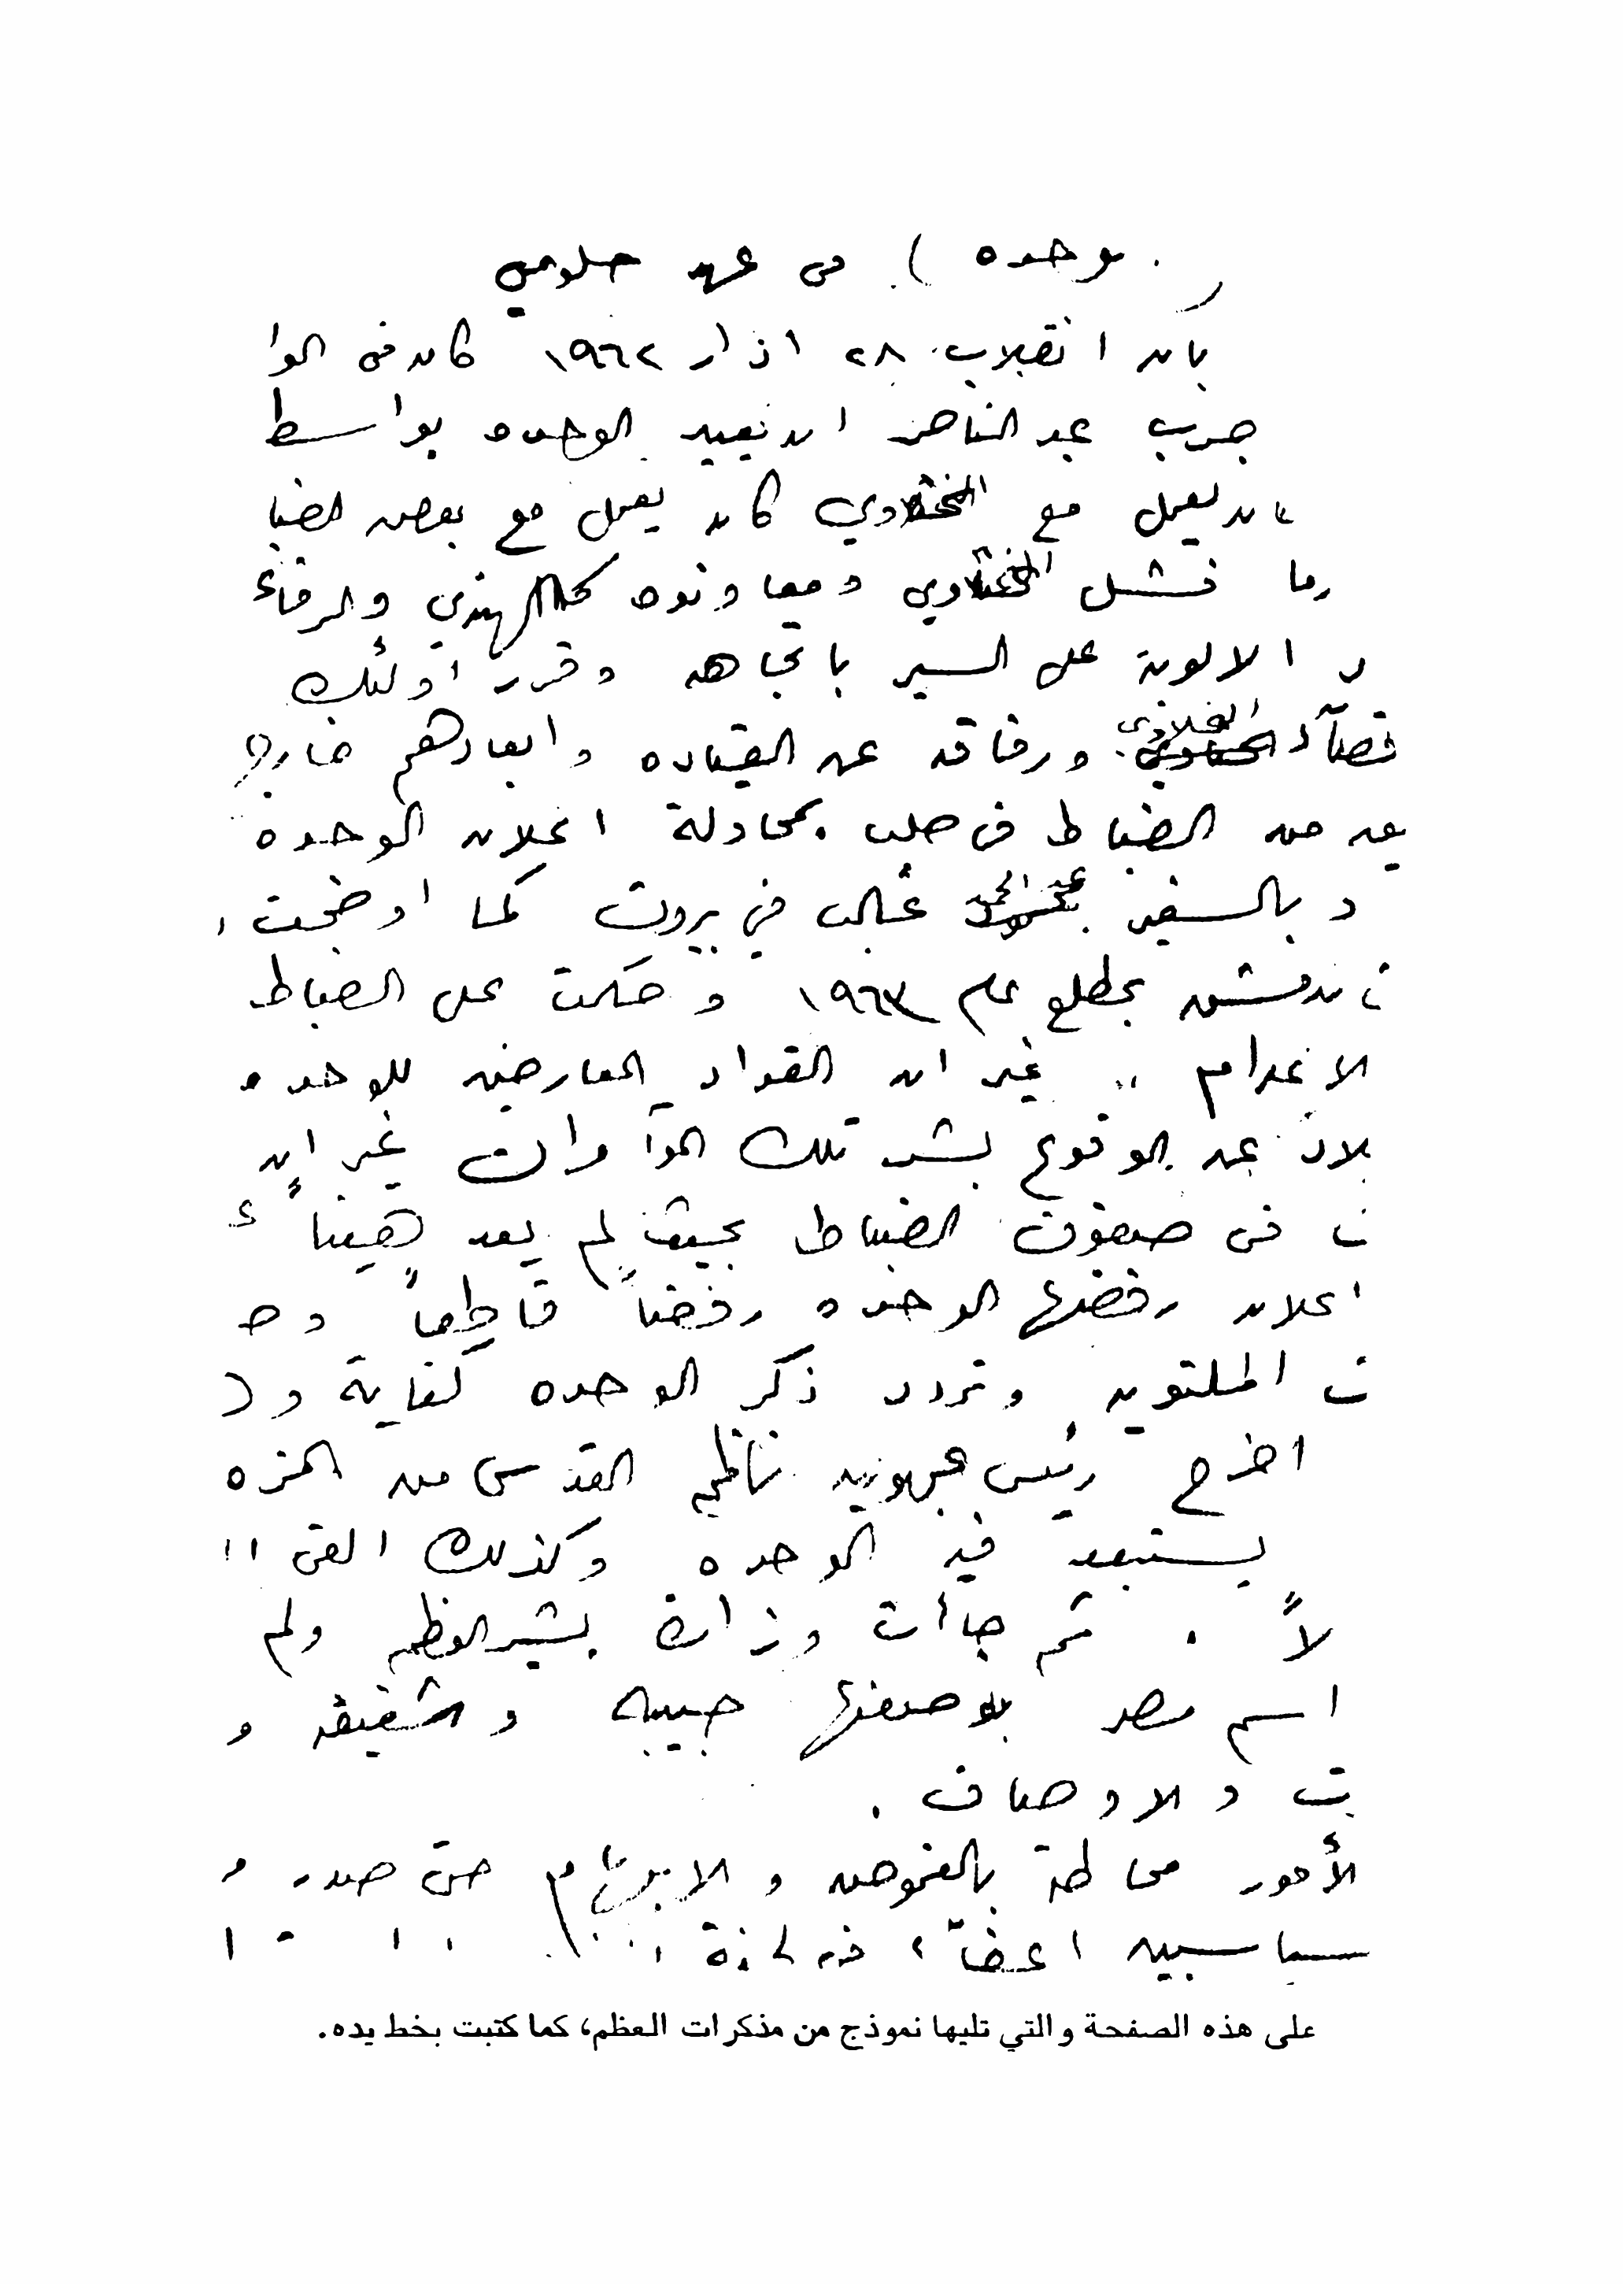 وحده ) في عهد حكومتي
بان انقلاب ٢٨ اذار ١٩٦٢ كان في الوا
جرب عبد الناصر ان يعيد الوحده بواسط
ان يعمل مع النحلاوي كان يعمل مع بعض الضبا
فشل النحلاوي ومعاونوه كالهندي والرفاء
الالوية على السير باتجاهه وقرر اولئك
قصآء النحلاوي ورفاقه عن القياده وابعادهم خارج
من الضباط في حلب بمحاولة اعلان الوحده
د بالسفير عبد الحميد غالب في بيروت كما اوضحت ا
دمشق بمطلع عام ١٩٦٣ وحكمت على الضباط
الاعدام .. غير ان القواد المعارضين للوحده
بلاد عن الوقوع بشر تلك المؤآمرات غير ان
ت في صفوف الضباط بحيث لم يعد هيناً
اعلان رفضها الوحده رفضاً قاطعاً و
ت الملتويه وتردد ذكر الوحده كغاية و
اخرج رئيس جمهوريه ناظم القدسي من المزه
يستبعد فيه الوحده وكذلك القى
لاً . ثم جاأت وزارة بشير العظمه ولم
اسم مصر بلا صفتها حبيبه وشقيقه و
ت والاوصاف .
الأمور محاطة بالغموض والابهام حتى صدر
سياسيين اعضآء
على هذه الصفحة والتي تليها نموذج من مذكرات العظم، كما كتبت بخط يده.